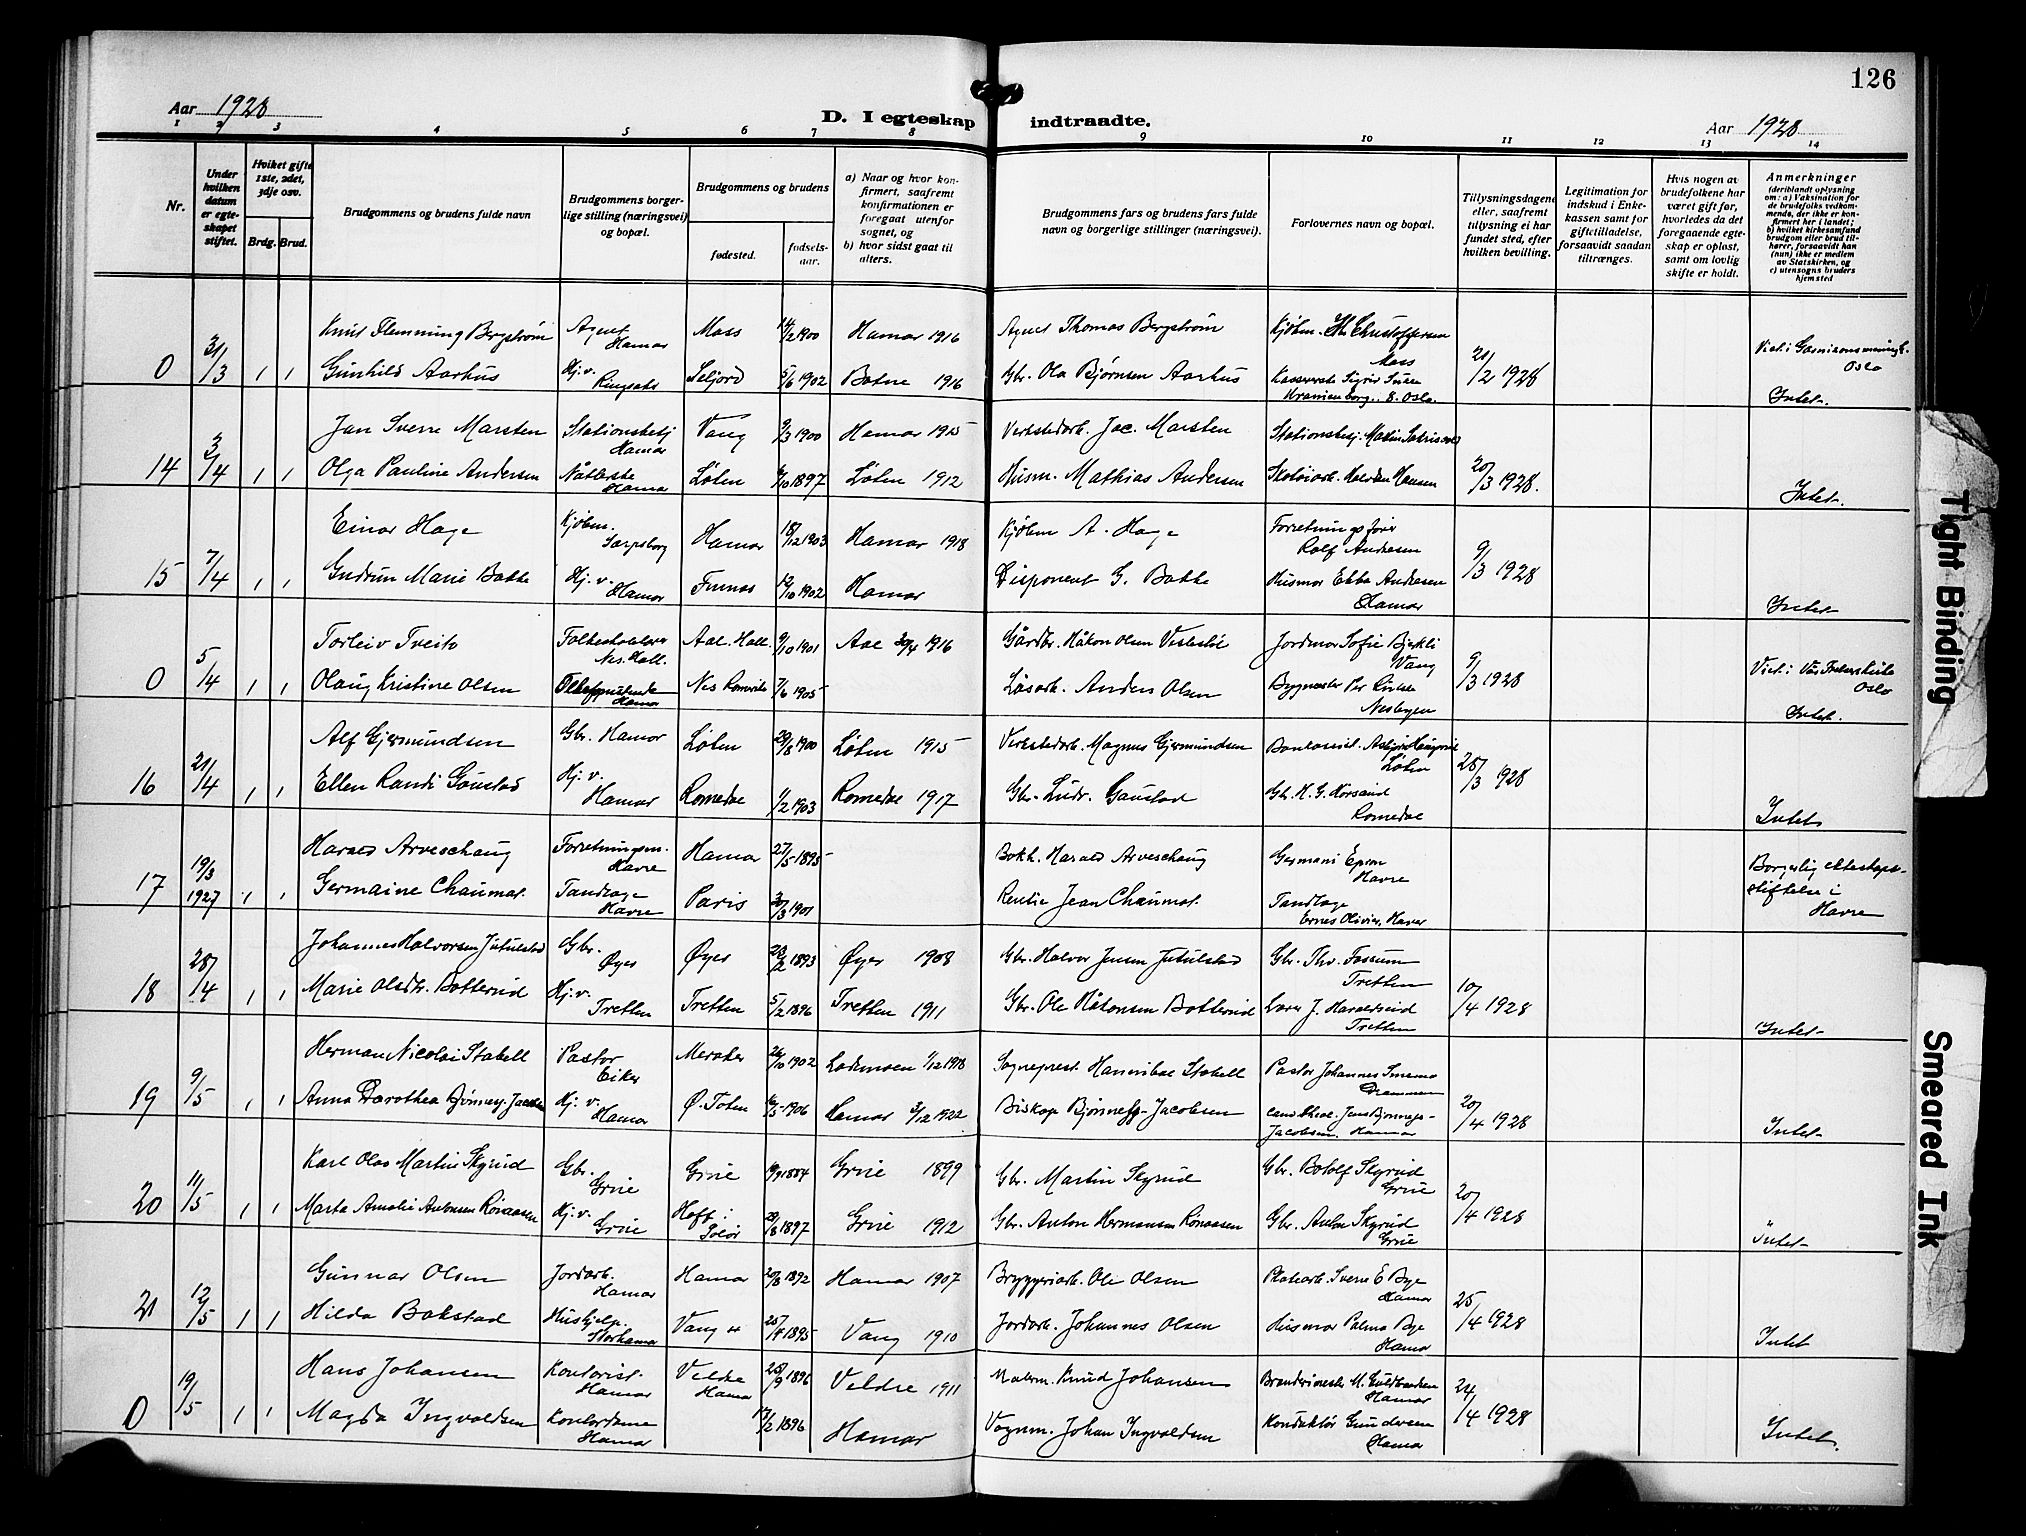 126
Aar 1928
D. I egteskap indtraadte.
Aar 1928
1 2 3 4 5 6 7 8 9 10 11 12 13 14
Nr.
Under hvilken datum er egteskapet stiftet.
Hvilket gifte 1ste, 2det, 3dje osv.
Brdg. Brud.
Brudgommens og brudens fulde navn
Brudgommens borgerlige stilling (næringsvei) og bopæl.
Brudgommens og brudens
fødested.
fødselsaar.
a) Naar og hvor konfirmert, saafremt konfirmationen er foregaat utenfor sognet, og
b) hvor sidst gaat til alters.
Brudgommens fars og brudens fars fulde navn og borgerlige stillinger (næringsvei).
Forlovernes navn og bopæl.
Tillysningsdagene eller, saafremt tillysning ei har fundet sted, efter hvilken bevilling.
Legitimation for indskud i Enkekassen samt for giftetilladelse, forsaavidt saadan tiltrænges.
Hvis nogen av brudefolkene har været gift før, hvorledes da det foregaaende egteskap er opløst, samt om lovlig skifte er holdt.
Anmerkninger
(deriblandt oplysning om: a) Vaksination for de brudefolks vedkommende, der ikke er konfirmert her i landet; b) hvilket kirkesamfund brudgom eller brud tilhører, forsaavidt han (hun) ikke er medlem av Statskirken, og c) utensogns bruders hjemsted
Knut Flemming Bergstrøm Agent Hamar Moss 14/2 1900 Hamar 1916 Agent Thomas Bergstrøm Kjøbm. Th. Christoffersen Moss
0 31/3 1 1 Gunhild Aarhus Hj. v. Ringsaker Seljord 5/6 1902 Botne 1916 Gbr. Ola Bjørnsen Aarhus 20/2 1928 Oslo Intet.
Jan Sverre Marsten Stationsbetj Hamar Vang 9/3 1900 Hamar 1915 Verkstedarb. Jac. Marsten
14 3/4 1 1 Olga Pauline Andersen Hamar Løten 1897 Løten 1912 Husm. Mathias Andersen 20/3 1928. Intet.
Einar Hage Kjøbm. Sarpsborg Hamar 18/12 1903 Hamar 1918 Kjøbm A. Hage Forretningsfører Rolf Andresen
15 7/4 1 1 Gudrun Marie Bakke Hj. v. Hamar Furnes 12/10 1902 Hamar Disponent G. Bakke Husmor Ebba Andresen Hamar 9/3 1928 Intet
Torleiv Tveito Nes. Hall. Aal. Hall. 9/10 1901 Aal 30/4 1916 Gårdbr. Håkon Olsen Jordmor Sofie Bjerkli Vang
0 5/4 1 1 Olaug Kristine Olsen Hamar Nes Romerike 7/6 1905 Løsarb. Anders Olsen Nesbyen 9/3 1928 Oslo Intet.
Alf Gjermundsen Gbr. Hamar Løten 29/8 1900 Løten 1915 Verkstedarb. Magnus Gjermundsen Løten
16 21/4 1 1 Ellen Randi Gaustad Hj. v. Hamar Romedal 1/2 1903 Romedal 1917 Gbr. Ludv. Gaustad Romedal 28/3 1928 Intet
Harald Arveschaug Forretningsm. Havre Hamar 27/5 1895 Bokh. Harald Arveschaug Havre
17 19/3 1927 1 1 Germaine Chaumat. Tandlæge Havre Paris 1901 Jean Chaumat. Tandlæge Havre Borgerlig ekteskapsstiftelse i Havre
Johannes Halvorsen Jutulstad Gbr. Øyer Øyer 20/2 1893 Øyer 1908 Gbr. Halvor Jensen Jutulstad Gbr. Thv. Fossum Tretten
18 28/4 1 1 Marie Olsdtr. Botterud Hj. v. Tretten Tretten 5/2 1896 Tretten 1911 Gbr. Ole Håkonsen Botterud Tretten 10/4 1928 Intet
Herman Nicolai Stabell Pastor Eiker Meraker 26/10 1902 Lademoen 1/12 1918 Sogneprest Hannibal Stabell Pastor Johannes Smemo Drammen
19 9/5 1 1 Anna Dorothea Bjønnes-Jacobsen Hj. v. Hamar Ø. Toten 1906 Hamar 3/12 1922 Biskop Bjønnes-Jacobsen cand. theol. Jens Bjønnes-Jacobsen. Hamar 20/4 1928 Intet
Karl Olav Martin Skyrud Gbr. Grue Grue 1884 Grue 1899 Gbr. Martin Skyrud Gbr. Botolf Skyrud Grue
20 11/5 1 1 Marta Amalie Antonsen Rønaasen Hj. v. Grue Hof i Solør 29/8 1897 Grue 1912 Gbr. Anton Hermansen Rønaasen Gbr. Anton Skyrud Grue 20/4 1928 Intet
Gunnar Olsen Jordarb. Hamar Hamar 20/8 1892 Hamar 1907 Bryggeriarb. Ole Olsen Sverre E Bye Hamar
21 12/5 1 1 Hilda Bakstad Hushjelp. Storhamar Vang 25/4 1895 Vang 1910 Jordarb. Johannes Olsen Husmor Palma Bye Hamar 25/4 1928 Intet
Hans Johansen Kontorist Hamar Veldre 28/9 1896 Veldre 1911 Knud Johansen Hamar
0 19/5 1 1 Magda Ingvaldsen Kontordame Hamar Hamar 17/2 1896 Hamar Vognm. Johan Ingvaldsen Konduktør Gundersen Hamar 24/4 1928 Intet.
Tight Binding
Smeared Ink